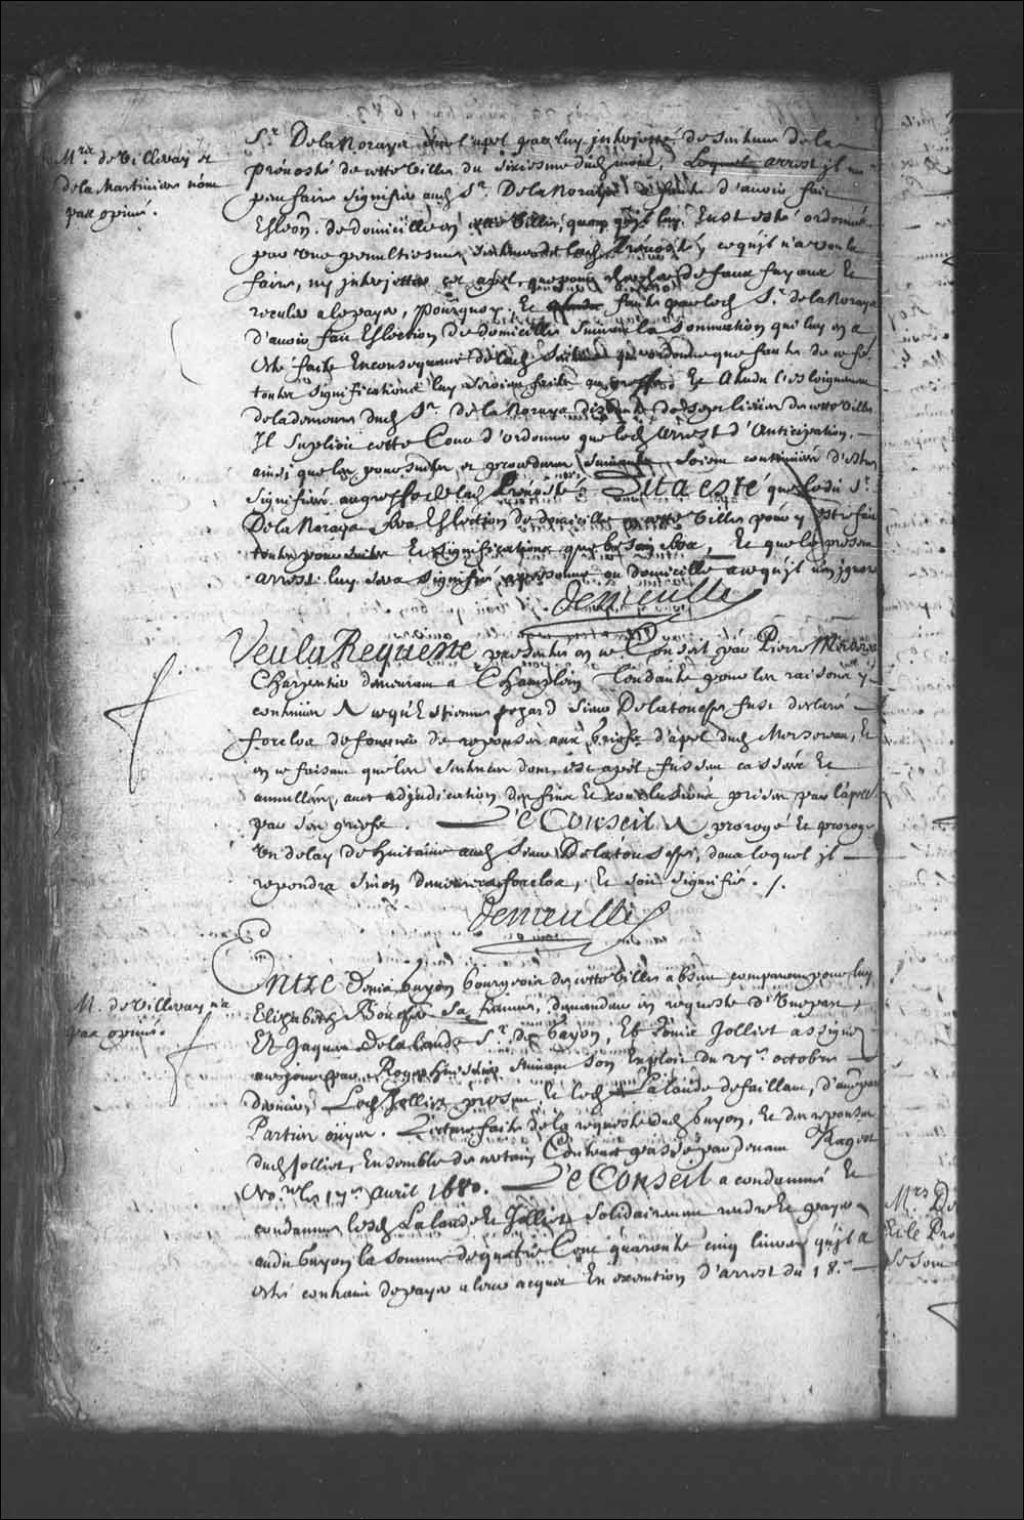 Mrs. de Villeray et
de la Martiniere n'ont
pas opiné.
Sr. De la Noraye d'un apel par luy interjetté de sentence de la
prevosté de cette Ville du sixiesme dud. mois, Lequel arrest il n'a
peu faire signifier aud. Sr. De la Noraye à faute d'avoir fait
Eslection de domicille en cette Ville, quoy qu'il luy Eust esté ordonné
par une penultiesme sentence de lad. Prevosté, ce qu'il n'a voulu
faire, ny interjetter cet apel, que pour chercher de faux fuyans Et
reculer a le payer, pourquoy, Et faute par led. Sr. de la Noraye
d'avoir fait Eslection de domicille suivant la sommation qui luy en a
Esté faite En consequence de lad. sentence qui ordonne que faute de ce fe.
toutes significations luy seroient faites au greffe Et Atendu l'esloignement
de la demeure dud. Sr. de la Noraye de cette Ville
Il suplioit cette Cour d'ordonner que led. arrest d'Anticipation,
ainsi que les poursuites et procedures suivantes, soient continuées d'estre
signifiées au greffe de lad. Prevosté. Dit a esté que ledit Sr.
De la Noraye fera Eslection de domicille en cette Ville pour y estre fait
toutes poursuites Et significations que besoin sera, Et que le present
arrest luy sera signifié a personne ou domicille a ce qu'il n'en ignore
Demeulle
Veu la Requeste presentée en ce Conseil par Pierre Mersereau
Charpentier demeurant a Champlain Tendante pour les raisons y
contenües A ce qu'Estienne pezard sieur De la touche fust declaré
forclos de fournir de reponses aux griefs d'apel dud. Mersereau, Et
en ce faisant que les sentences dont est apel fussent cassées Et
annullées, avec adjudication des fins Et conclusions prises par l'apell.
par ses griefs. Le Conseil A prorogé Et proroge
Un delay de huitaine aud. sieur De la touche, dans lequel il
repondra sinon demeurera forclos, Et soit signifié. /.
Demeulle
M. de Villeray n'a
pas opiné.
Entre Denis Guyon bourgeois de cette Ville absent comparant pour luy
Elizabeth Boucher sa femme, demandeur en requeste d'une part,
Et Jaques Delalande Sr. de Gayon, Et Louis Jolliet assignez
a ce jour par Roger huissier suivant son Exploit du 27e. octobre
dernier, Led. Jolliet present, Et led. Lalande defaillant, d'autre part
Parties ouyes. Lecture faite de la requeste dud. Guyon, Et des reponses
dud. Jolliet, Ensemble de certain Contract passé par devant Rageot
No.re le 17e. Avril 1680. Le Conseil a condamné Et
condamne lesd. Lalande Et Jolliet solidairement rendre Et payer
audit Guyon la somme de quatre Cent quarente cinq livres qu'il a
esté contraint de payer a leur acquit En execution d'arrest du 18.e
Mrs. De
Et le Pro